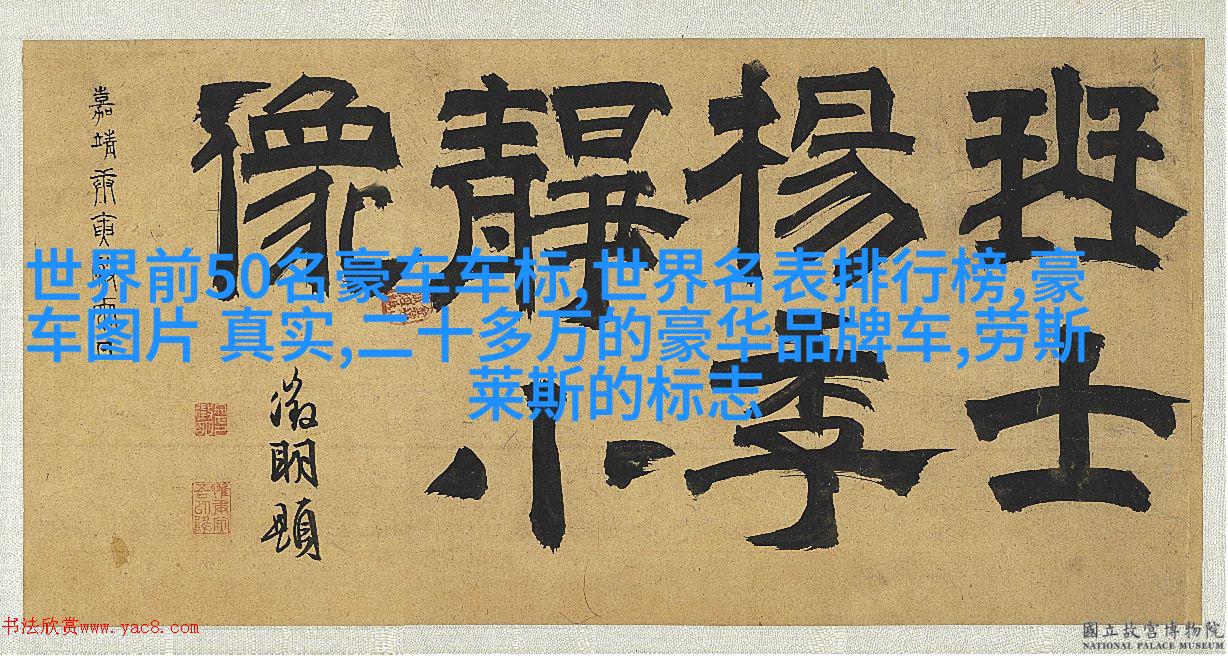 琴士
楊季
靜小
像
嘉靖庚寅
徵明題
世界前50名豪车车标,世界名表排行榜,豪
车图片 真实,二十多万的豪华品牌车,劳斯
莱斯的标志
书法欣赏www.yac8.com
國立故宮博物院
NATIONAL PALACE MUSEUM